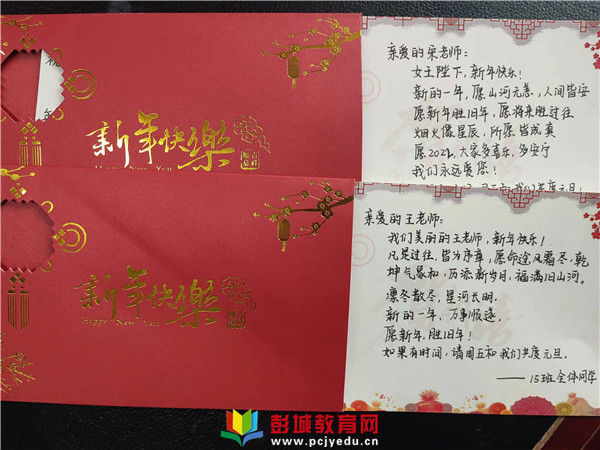 祝
新年快樂
Happy New Year
亲爱的宋老师：
女王陛下，新年快乐！
新的一年，愿山河无恙，人间皆安
愿新年胜旧年，愿将来胜过往
烟火像星辰，所愿皆成真
愿2022，大家多喜乐，多安宁
我们永远爱您！
我们共度元旦！
新年快樂
Happy New Year
亲爱的王老师：
我们美丽的王老师，新年快乐！
凡是过往，皆为序章，愿命途风霜尽，乾
坤气象和，历添新岁月，福满旧山河。
凛冬散尽，星河长明，
新的一年，万事顺遂，
愿新年，胜旧年！
如果有时间，请周五和我们共度元旦。
——15班全体同学
彭城教育网
www.pcjyedu.cn